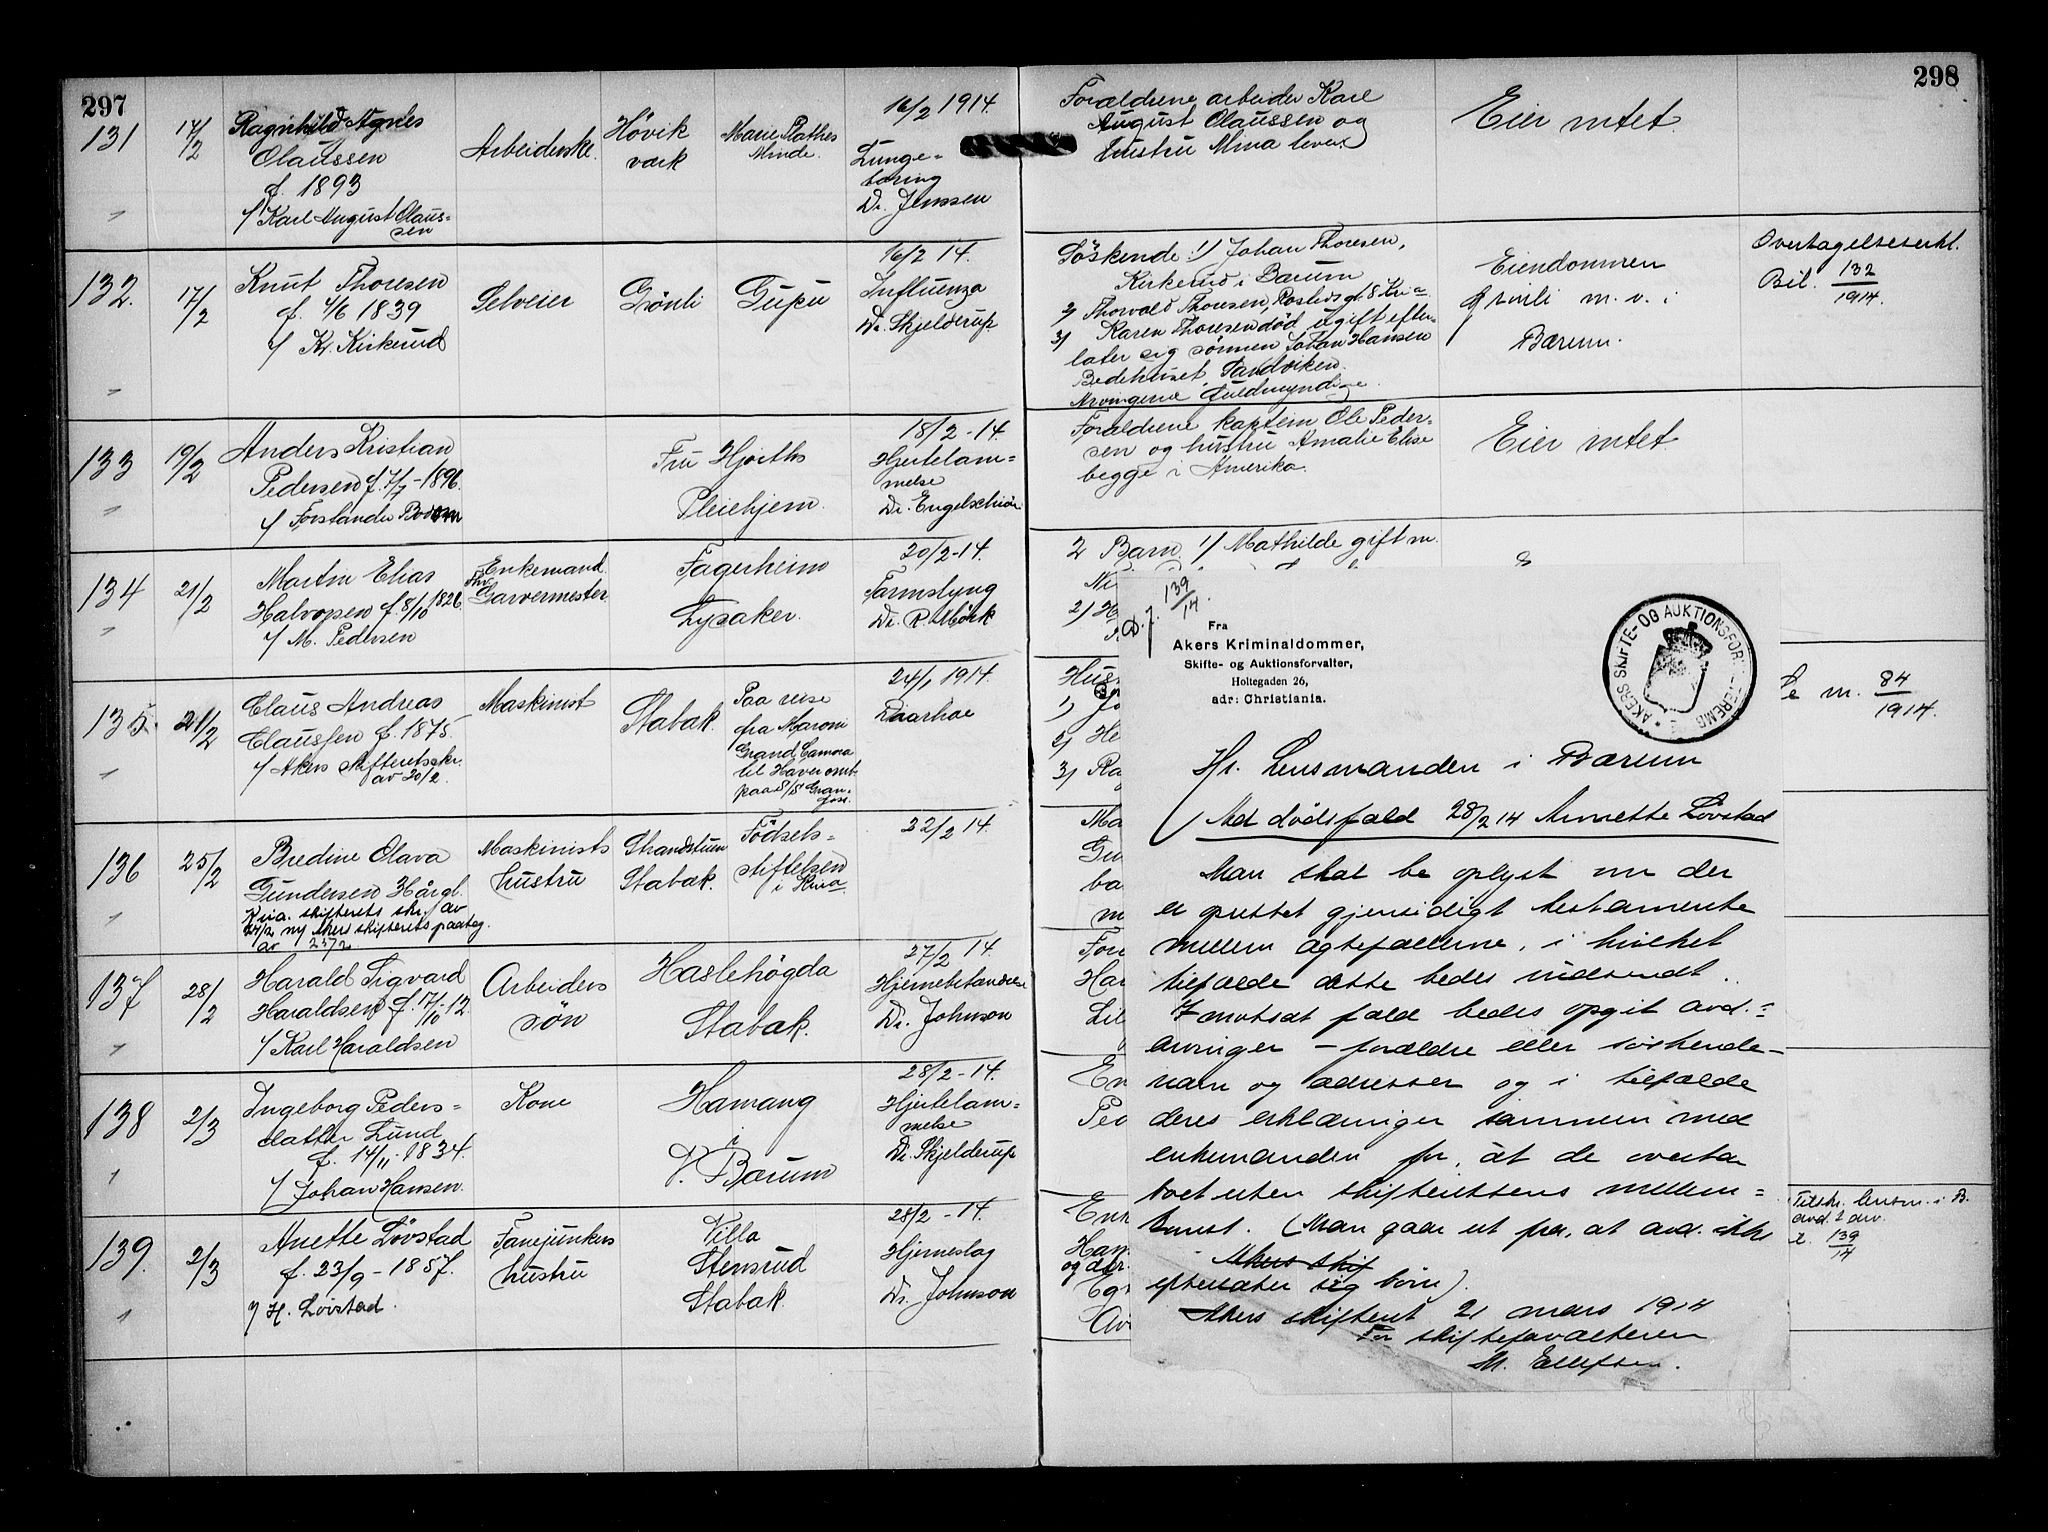 297
131
17/2
Ragnhild Agnes
Olaussen
f. 1893
v/ Karl August Olaus=
sen
Arbeiderske
Hövik
værk
Marie Plathes
Minde.
16/2 1914.
Lunge-
tæring
Dr. Jenssen
132.
17/2
Knut Thoresen
f. 4/6 1839
v/ Kr. Kirkerud
Selveier
Grönli
Gupu
16/2 14.
Influenza
Dr. Skjelderup
133
19/2
Anders Kristian
Pedersen f. 7/7-1896.
v/ Forstander
Fru Hjorths
Pleiehjem.
18/2-14.
Hjertelam=
melse
Dr. Engelschiön
134
21/2
Martin Elias
Halvorsen f. 8/10 1826
v/ M. Pedersen
Enkemand.
Fhv.
Garvermester.
Fagerheim
Lysaker.
20/2-14.
Tarmslyng
Dr. R. Mörk
135.
21/2
Claus Andreas
Claussen f. 1875.
v/ Akers skifteretsskr.
av 20/2.
Maskinist
Stabæk.
Paa reise
fra
Grand Camora
til Havre omb.
paa S/S
24/1 1914.
Diarhoe
136
25/2
Bredine Olava
Gundersen
Kria. skifterets skr. av
24/2 m/ Akers skifterets paateg.
av 25/2
Maskinists
hustru
Strandstuen
Stabæk.
Födsels=
stiftelsen
i Kria.
22/2 14.
137
28/2
Harald Sigvard
Haraldsen f. 17/10-13.
v/ Karl Haraldsen
Arbeiders
sön
Haslehögda
Stabæk.
27/2 14.
Hjernebetændelse
Dr. Johnson
138
2/3
Ingeborg Peders=
datter Lund
f. 14/11-1834.
v/ Johan Hansen.
Kone
Hamang
i
V. Bærum
28/2-14.
Hjertelam=
melse
Dr. Skjelderup
139.
2/3
Anette Lövstad
f. 23/9-1857.
v/ H. Lövstad.
Fanejunkers
hustru
Villa
Stensrud
Stabæk.
28/2-14.
Hjerneslag
Dr. Johnson
298
Forældrene arbeider Karl
August Olaussen og
hustru Mina lever
Eier intet.
Söskende: 1/ Johan Thoresen,
Kirkerud i Bærum
2/ Thorvald Thoresen, Roslivsgt. 8 Kria.
3/ Karen Thoresen död ugift efter=
later sig sönnen Johan Hansen
Bedehuset, Sandviken.
Arvingerne fuldmyndige.
Eiendommen
Grönli m. v. i
Bærum.
Overtagelseserkl.
Bil. 132/1914.
Forældrene kaptein Ole Peder=
sen og hustru Amalie Elise
begge i Amerika.
Eier intet.
2 Barn. 1/ Mathilde gift m.
Ni
2) H
Hus
1) Jo
2) He
3) Ra
m. 84/1914.
Ma
Gu
ba
m
For
Har
Lil
En
Ped
Enk
Han
og dør
Eg
Arv
Tilskr. lensm. i B.
139/14
D. J. 139/14.
Fra
Akers Kriminaldommer,
Skifte- og Auktionsforvalter,
Holtegaden 26,
adr: Christiania.
AKERS SKIFTE- OG AUKTIONSFOR
Hr. Lensmanden i Bærum
Ad dödsfald 28/2 14 Annette Lövstad
Man skal be oplyst om der
er oprettet gjensidigt testamente
mellem ægtefællerne, i hvilket
tilfælde dette bedes indsendt.
I motsat fald bedes opgit avd.=
arvinger – forældre eller söskende –
navn og adresser og i tilfælde
deres erklæringer sammen med
enkemanden for, at de overta
boet uten skifterettens mellem=
komst. (Man gaar ut fra, at avd. ikke
Akers skif
efterlater sig börn).
Akers skifteret 21 mars 1914
For skifteforvalteren
M. Ellefsen.